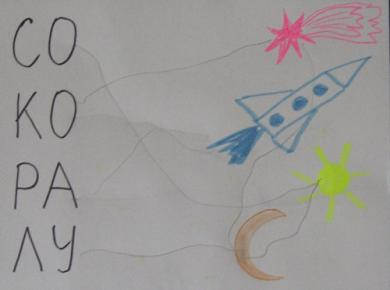 СО
КО
РА
ЛУ